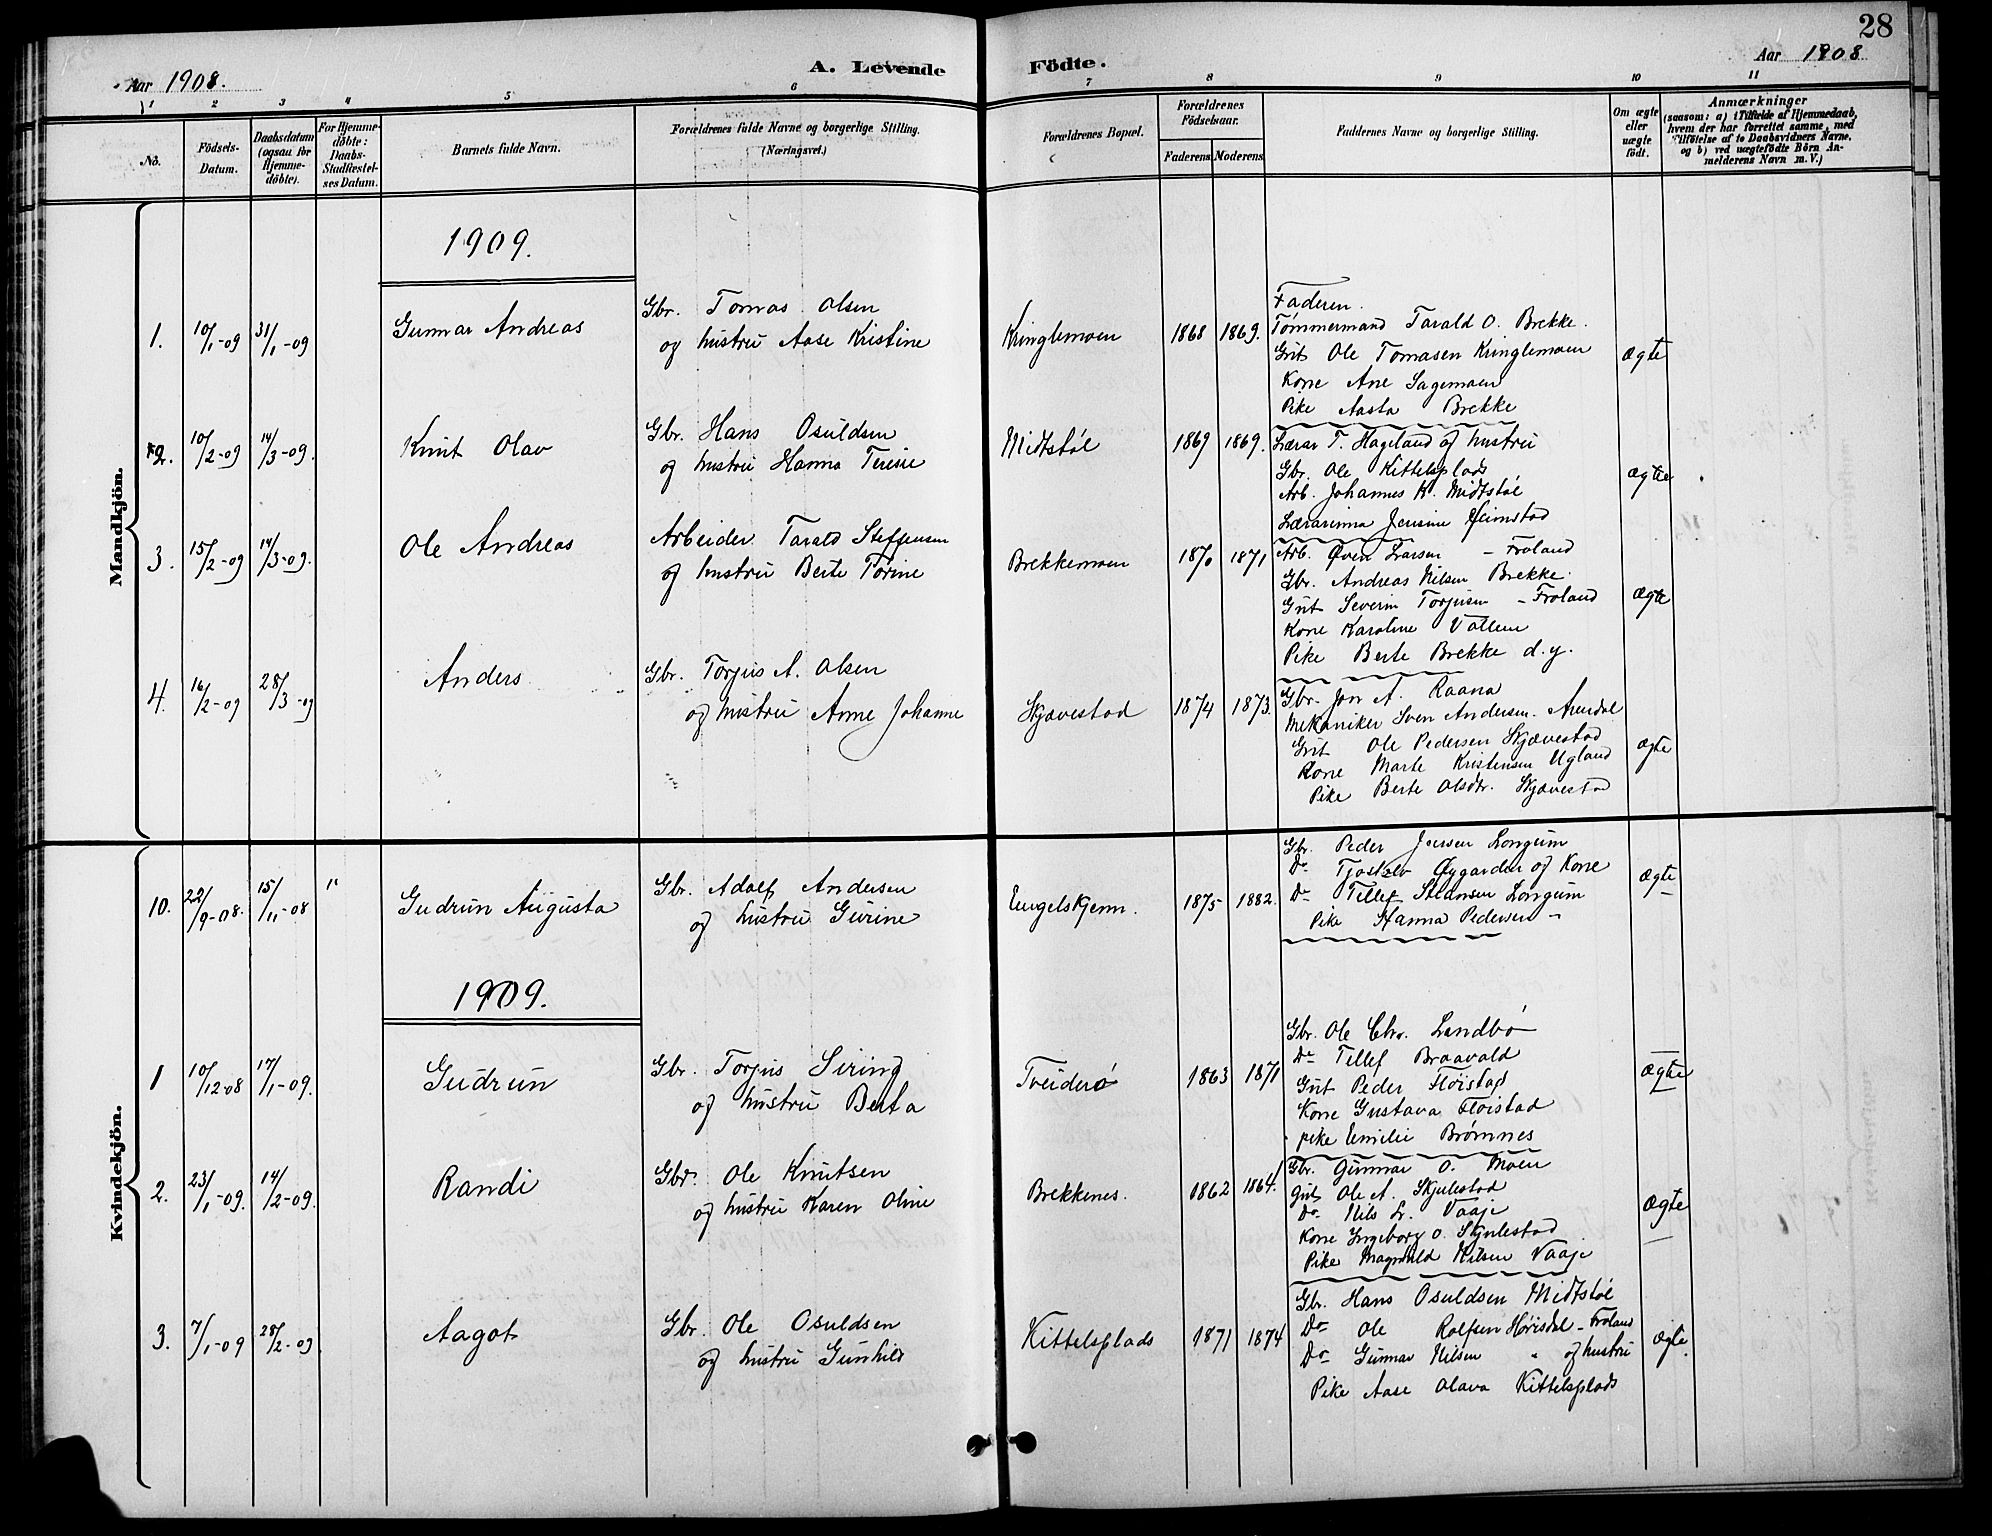 28
Aar 1908.
A. Levende Födte.
Aar 1908
1 2 3 4 5 6 7 8 9 10 11
No.
Födsels-
Datum.
Daabsdatum
(ogsaa for
Hjemme-
döbte).
For Hjemme-
döbte:
Daabs-
Stadfæstel-
ses Datum.
Barnets fulde Navn.
Forældrenes fulde Navne og borgerlige Stilling.
(Næringsvei.)
Forældrenes Bopæl.
Forældrenes
Födselsaar.
Faderens. Moderens.
Faddernes Navne og borgerlige Stilling.
Om ægte
eller
uægte
født.
Anmærkninger
(saasom: a) i Tilfælde af Hjemmedaab,
hvem der har forrettet samme, med
Tilføielse af to Daabsvidners Navne,
og b) ved uægtefödte Börn An-
melderens Navn m. V.)
Mandkjön.
1909.
1. 10/1-09 31/1-09 Gunnar Andreas
Gbr. Tomas Olsen
og hustru Aase Kristine
Kringlemoen 1868 1869.
Faderen.
Tømmermand Tarald O. Brekke.
Gut Ole Tomasen Kringlemoen
Kone Ane Sagemoen
Pike Aasta Brekke
Ægte
2. 10/2-09 14/3-09. Knut Olav
Gbr. Hans Osuldsen
og hustru Hanna Teresie
Midtstøl 1869 1869.
Lærer T. Hageland og hustru
Gbr. Ole Kittelsplads
Arb. Johannes K. Midtstøl
Lærerinna Jensine Heimstad
Ægte
3. 15/2-09 14/3-09. Ole Andreas
Arbeider Tarald Steffensen
og hustru Berte Torine
Brekkemoen 1870 1871
Arb. Øven Larsen - Froland
Gbr. Andreas Nilsen Brekke.
Gut Severin Torjusen - Froland
Kone Karoline Vallem
Pike Berte Brekke d.y.
Ægte
4. 16/2-09 28/3-09 Anders
Gbr. Torjus A. Olsen
og hustru Anne Johanne
Skjævestad 1874 1873.
Gbr. Jon A. Raana
Mekaniker Sven Andersen. Arendal
Gut Ole Pedersen Skjævestad
Kone Marte Kristensen Ugland
Pike Berte Olsdtr. Skjævestad
Ægte
Kvindekjön.
10. 22/9-08. 15/11-08 " Gudrun Augusta
Gbr. Adolf Andersen
og hustru Gurine
Engelskjenn. 1875 1882.
Gbr. Peder Jensen Longum
Do Tjostolv Øygarden og Kone
Do Tellef Longum
Pike Hanna Pedersen -
Ægte
1909.
1 10/12-08 17/1-09. Gudrun
Gbr. Torjus Siring
og hustru Berta
Tveiderø 1863 1871
Gbr. Ole Chr. Landbø
Do Tellef Braavold
Gut Peder Fløistad
Kone Gustava Fløistad
pike Emilie Brømnes
Ægte
2. 23/1-09. 14/2-09. Randi
Gbr. Ole Knutsen
og hustru Karen Oline
Brekkenes. 1862 1864.
Gbr. Gunnar O. Moen
Gut Ole A. Skjulestad
Do Nils L. Vaaje
Kone Ingeborg O. Skjulestad
Pike Magnhild Nilsen Vaaje
Ægte
3. 7/1-09 28/2-09. Aagot
Gbr. Ole Osuldsen
og hustru Gunhild
Kittelsplads 1871 1874
Gbr. Hans Osuldsen Midtstøl
Do Ole Rolfsen Hurisdal - Froland
Do Gunnar Nilsen " og hustru
Pike Aase Olava Kittelsplads
Ægte.